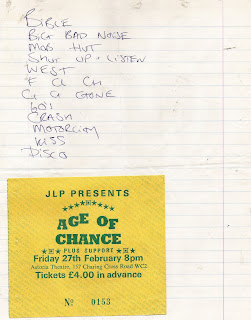 BIBLE
BIG BAD NOISE
MOB HUT
SHUT UP + LISTEN
WEST
F CL CH
G G GONE
60's
CRASH
MOTORCITY
KISS
DISCO
JLP PRESENTS
AGE OF
CHANCE
PLUS SUPPORT
Friday 27th February 8pm
Astoria Theatre, 157 Charing Cross Road WC2
Tickets £4.00 in advance
No 0153